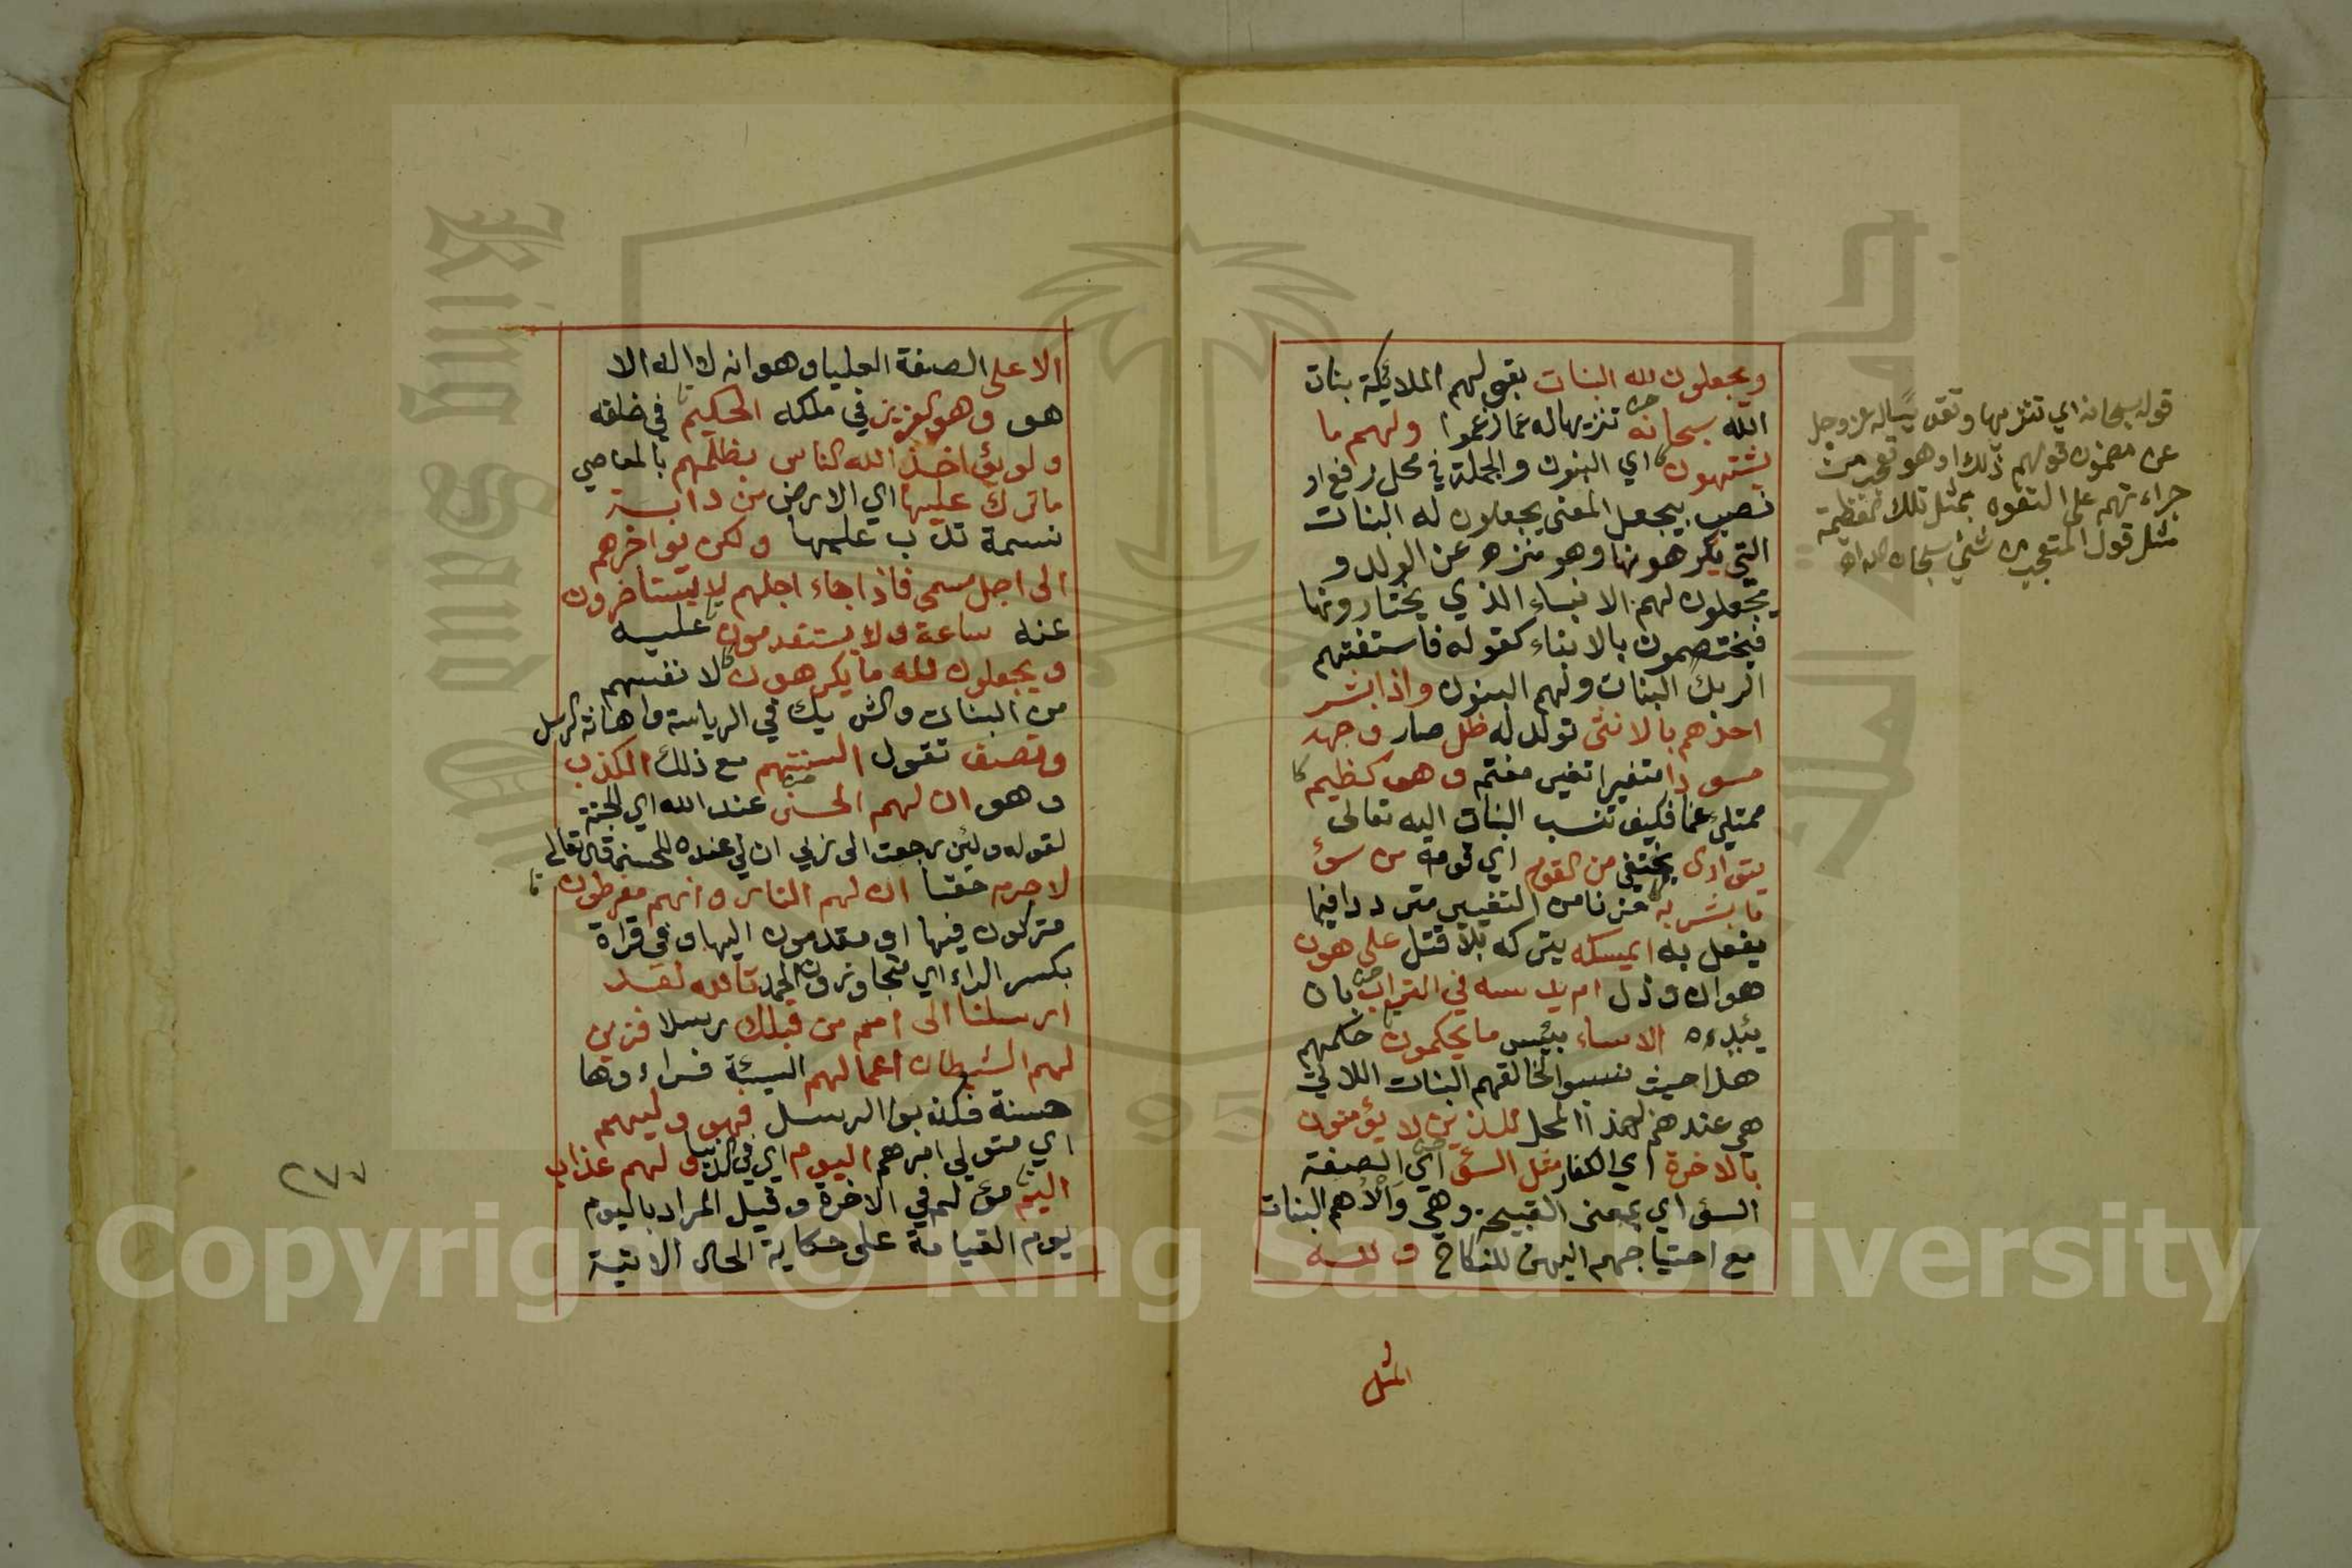 ويجعلون لله البنات بقولهم الملائكة بنات
الله سبحانه تنزيها له عما زعموا ولهم ما
يشتهون اي البنون والجملة في محل رفع او
نصب بيجعل المعنى يجعلون له البنات
التي يكرهونها وهو منزه عن الولد و
يجعلون لهم الابناء الذي يختارونها
فيختصمون بالابناء كقوله فاستفتهم
الربك البنات ولهم البنون واذا بشر
احدهم بالانثى تولد له ظل صار وجهه
مسودا متغيرا تغير مغتم وهو كظيم
ممتلئ غما فكيف تنسب البنات اليه تعالى
يتوارى يختفي من القوم اي قومه من سوء
ما بشر به خوفا من التعيير مترددا فيما
يفعل به ايمسكه يتركه بلا قتل على هون
هوان وذل ام يدسه في التراب بان
يئده الا ساء بئس ما يحكمون حكمهم
هذا حيث نسبوا لخالقهم البنات اللاتي
هي عندهم بهذا المحل للذين لا يؤمنون
بالاخرة اي الكفار مثل السوء اي الصفة
السوء اي بمعنى القبيحة وهي وأدهم البنات
مع احتياجهم اليهن للنكاح ولله
المثل
قوله سبحانه اي تنزيها وتقديسا له عز وجل
عن مضمون قولهم ذلك او هو تعجب من
جراءتهم على التفوه بمثل تلك العظيمة
مثل قول المتعجب من شيء سبحان الله اه
الاعلى الصفة العليا وهو انه لا اله الا
هو وهو العزيز في ملكه الحكيم في خلقه
ولو يؤاخذ الله الناس بظلمهم بالمعاصي
ما ترك عليها اي الارض من دابة
نسمة تدب عليها ولكن يؤاخرهم
الى اجل مسمى فاذا جاء اجلهم لا يستاخرون
عنه ساعة ولا يستقدمون عليه
ويجعلون لله ما يكرهون لانفسهم
من البنات والشريك في الرياسة واهانة الرسل
وتصف تقول السنتهم مع ذلك الكذب
وهو ان لهم الحسنى عند الله اي الجنة
لقوله ولئن رجعت الى ربي ان لي عنده للحسنى قال تعالى
لا جرم حقا ان لهم النار وانهم مفرطون
متركون فيها او مقدمون اليها وفي قراة
بكسر الراء اي متجاوزون الحد تالله لقد
ارسلنا الى امم من قبلك رسلا فزين
لهم الشيطان اعمالهم السيئة فراءوها
حسنة فكذبوا الرسل فهو وليهم
اي متولي امرهم اليوم اي في الدنيا ولهم عذاب
اليم مؤلم في الاخرة وقيل المراد باليوم
يوم القيامة على حكاية الحال الاتية
٢٧٧
Copyright © King Saud University